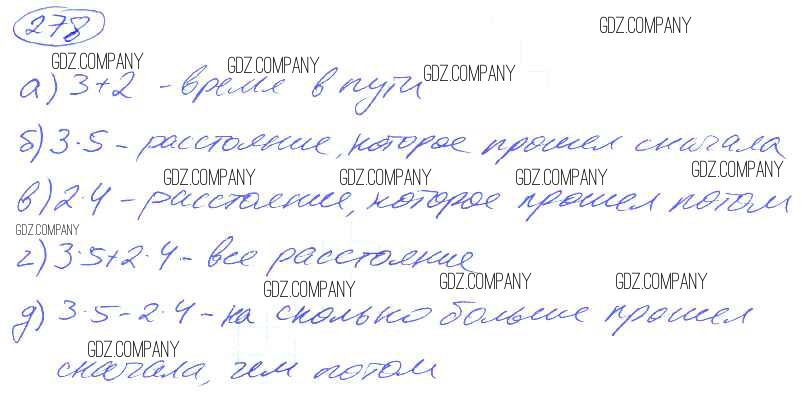 278
GDZ.COMPANY
GDZ.COMPANY GDZ.COMPANY GDZ.COMPANY
а) 3+2 - время в пути
б) 3·5 - расстояние, которое прошел сначала
GDZ.COMPANY GDZ.COMPANY GDZ.COMPANY GDZ.COMPANY
в) 2·4 - расстояние, которое прошел потом
GDZ.COMPANY
г) 3·5+2·4 - все расстояние
GDZ.COMPANY GDZ.COMPANY GDZ.COMPANY
д) 3·5-2·4 - на сколько больше прошел
GDZ.COMPANY
сначала, чем потом